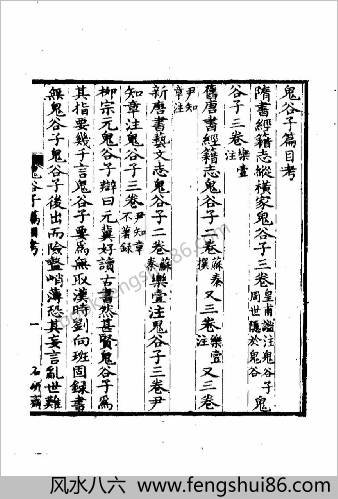 鬼谷子篇目考
隋書經籍志縱橫家鬼谷子三卷皇甫謐注鬼谷子周世隱於鬼谷鬼
谷子三卷樂壹注
舊唐書經籍志鬼谷子二卷蘇秦撰又三卷樂壹注又三卷
尹知章注
新唐書藝文志鬼谷子二卷蘇秦樂壹注鬼谷子三卷尹
知章注鬼谷子三卷尹知章不著錄
柳宗元鬼谷子辯曰元冀好讀古書然甚賢鬼谷子為
其指要幾千言鬼谷子要為無取漢時劉向班固錄書
無鬼谷子鬼谷子後出而險盭峭薄恐其妄言亂世難
鬼谷子篇目考
一
石研齋
www.fengshui86.com
风水八六 www.fengshui86.com